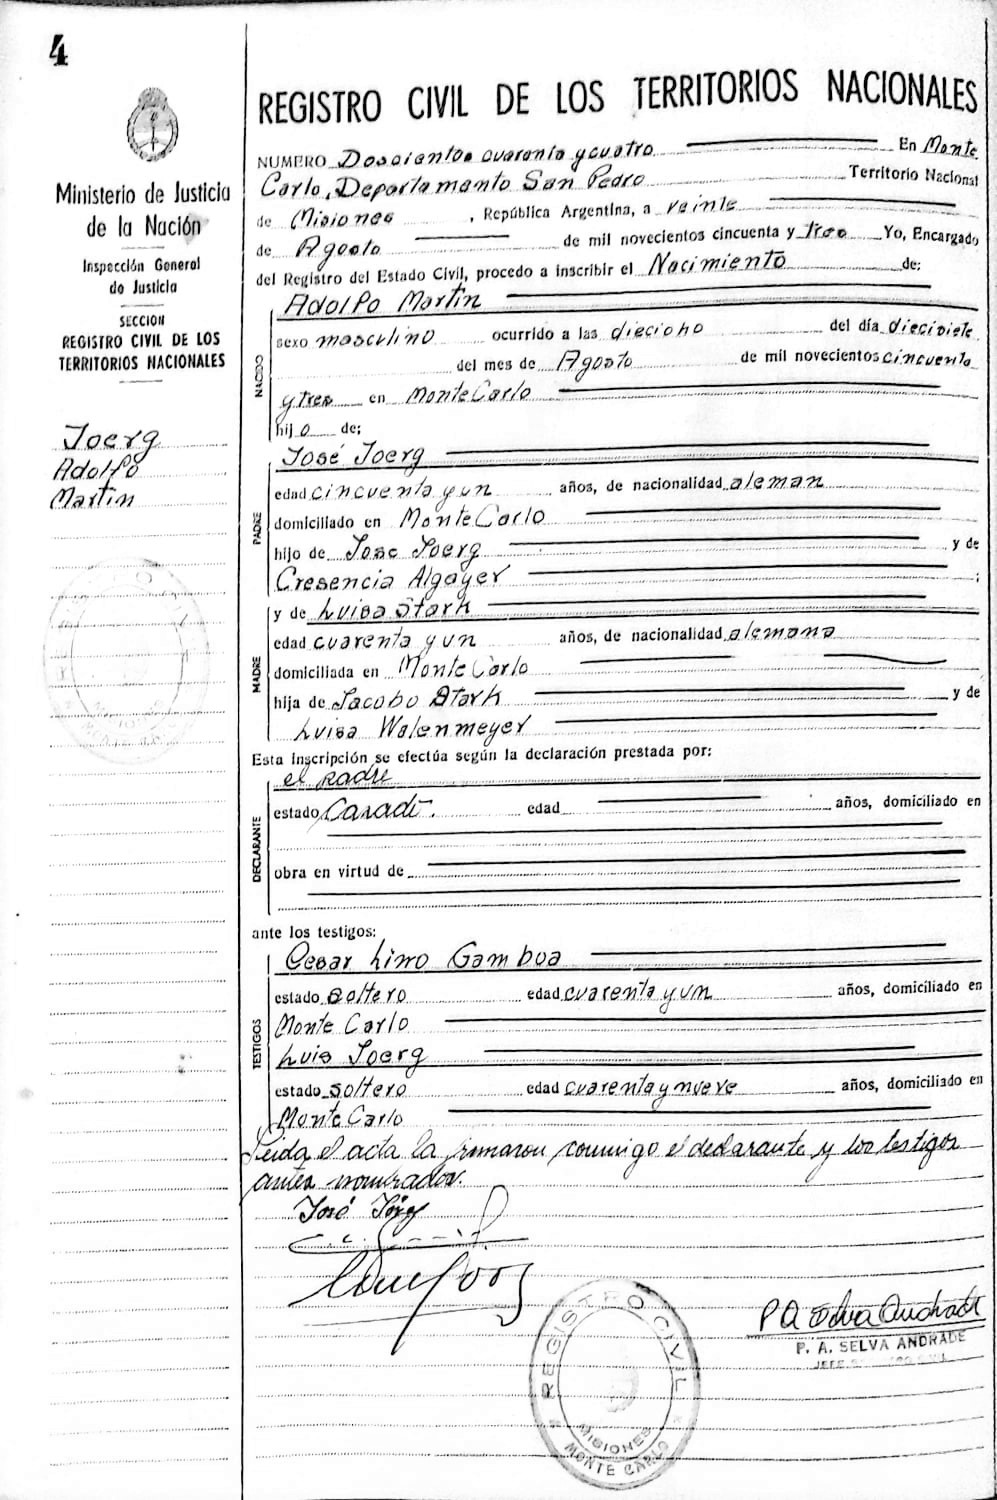 4
Ministerio de Justicia
de la Nación
Inspección General
de Justicia
SECCION
REGISTRO CIVIL DE LOS
TERRITORIOS NACIONALES
Joerg
Adolfo
Martin
REGISTRO CIVIL DE LOS TERRITORIOS NACIONALES
NUMERO Doscientos cuarenta y cuatro En Monte
Carlo, Departamento San Pedro Territorio Nacional
de Misiones, República Argentina, a veinte
de Agosto de mil novecientos cincuenta y tres Yo, Encargado
del Registro del Estado Civil, procedo a inscribir el Nacimiento de:
NACIDO
Adolfo Martin
sexo masculino ocurrido a las dieciocho del día diecisiete
del mes de Agosto de mil novecientos cincuenta
y tres en Monte Carlo
hijo de:
PADRE
José Joerg
edad cincuenta y un años, de nacionalidad aleman
domiciliado en Monte Carlo
hijo de Jose Joerg y de
Cresencia Algayer ;
MADRE
y de Luisa Stark
edad cuarenta y un años, de nacionalidad alemana
domiciliada en Monte Carlo
hija de Jacobo Stark y de
Luisa Walenmeyer
Esta inscripción se efectúa según la declaración prestada por:
DECLARANTE
el padre
estado Casado. edad años, domiciliado en
obra en virtud de
ante los testigos:
TESTIGOS
Cesar Lirro Gamboa
estado soltero edad cuarenta y un años, domiciliado en
Monte Carlo
Luis Joerg
estado soltero edad cuarenta y nueve años, domiciliado en
Monte Carlo
Leida el acta la firmaron conmigo el declarante y los testigos
antes nombrados.
José Jörg
P A Selva Andrade
P. A. SELVA ANDRADE
REGISTRO CIVIL
MISIONES
MONTE CARLO